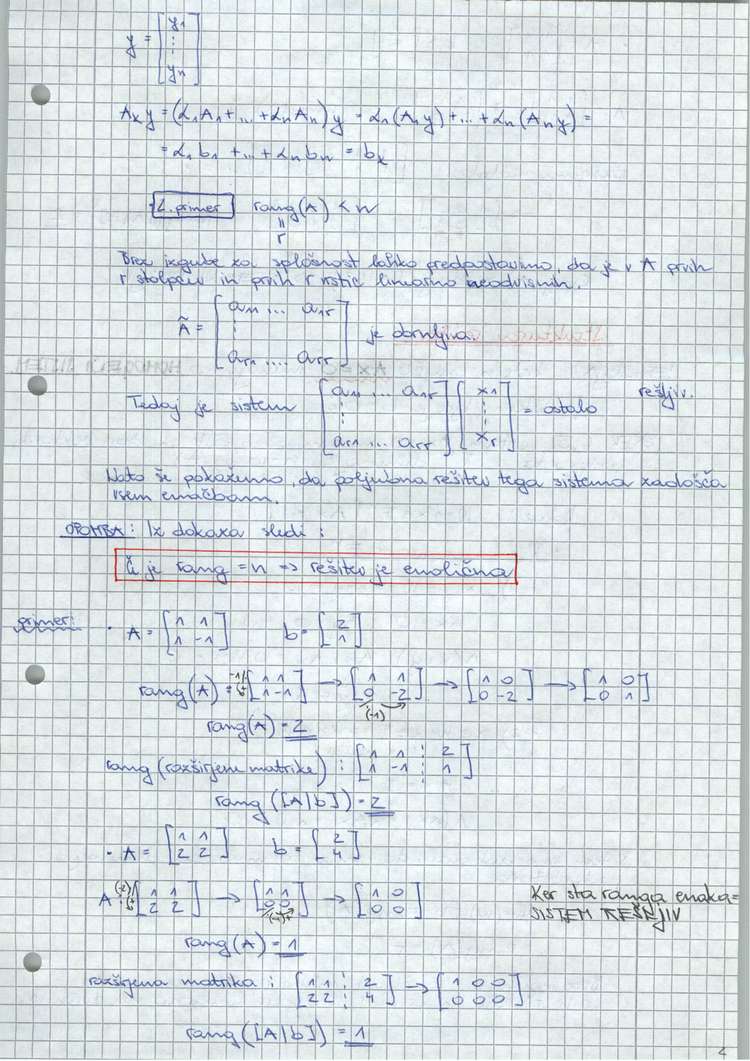 y = [y₁ ⋮ yₙ]
Aₓy = (α₁A₁ + ... + αₙAₙ) y = α₁(A₁y) + ... + αₙ(Aₙy) =
= α₁b₁ + ... + αₙbₙ = bₓ
2. primer rang(A) < n
=
r
Brez izgube za splošnost lahko predpostavimo, da je v A prvih
r stolpcev in prvih r vrstic linearno neodvisnih.
Ã = [a₁₁ ... a₁ᵣ ⋮ aᵣ₁ .... aᵣᵣ] je obrnljiva.
Tedaj je sistem [a₁₁ ... a₁ᵣ ⋮ aᵣ₁ ... aᵣᵣ] [x₁ ⋮ xᵣ] = ostalo rešljiv.
Nato še pokažemo, da poljubna rešitev tega sistema zadošča
vsem enačbam.
OPOMBA: Iz dokaza sledi:
Če je rang = n => rešitev je enolična
primer:
· A = [1 1; 1 -1] b = [2; 1]
rang(A) = -1/+ [1 1; 1 -1] → [1 1; 0 -2] → [1 0; 0 -2] → [1 0; 0 1]
(-1)
rang(A) = 2
rang(razširjene matrike): [1 1 ¦ 2; 1 -1 ¦ 1]
rang([A|b]) = 2
· A = [1 1; 2 2] b = [2; 4]
A: (-2)/+ [1 1; 2 2] → [1 1; 0 0] → [1 0; 0 0]
(-1)+
Ker sta ranga enaka =
SISTEM REŠLJIV
rang(A) = 1
razširjena matrika: [1 1 ¦ 2; 2 2 ¦ 4] → [1 0 0; 0 0 0]
rang([A|b]) = 1